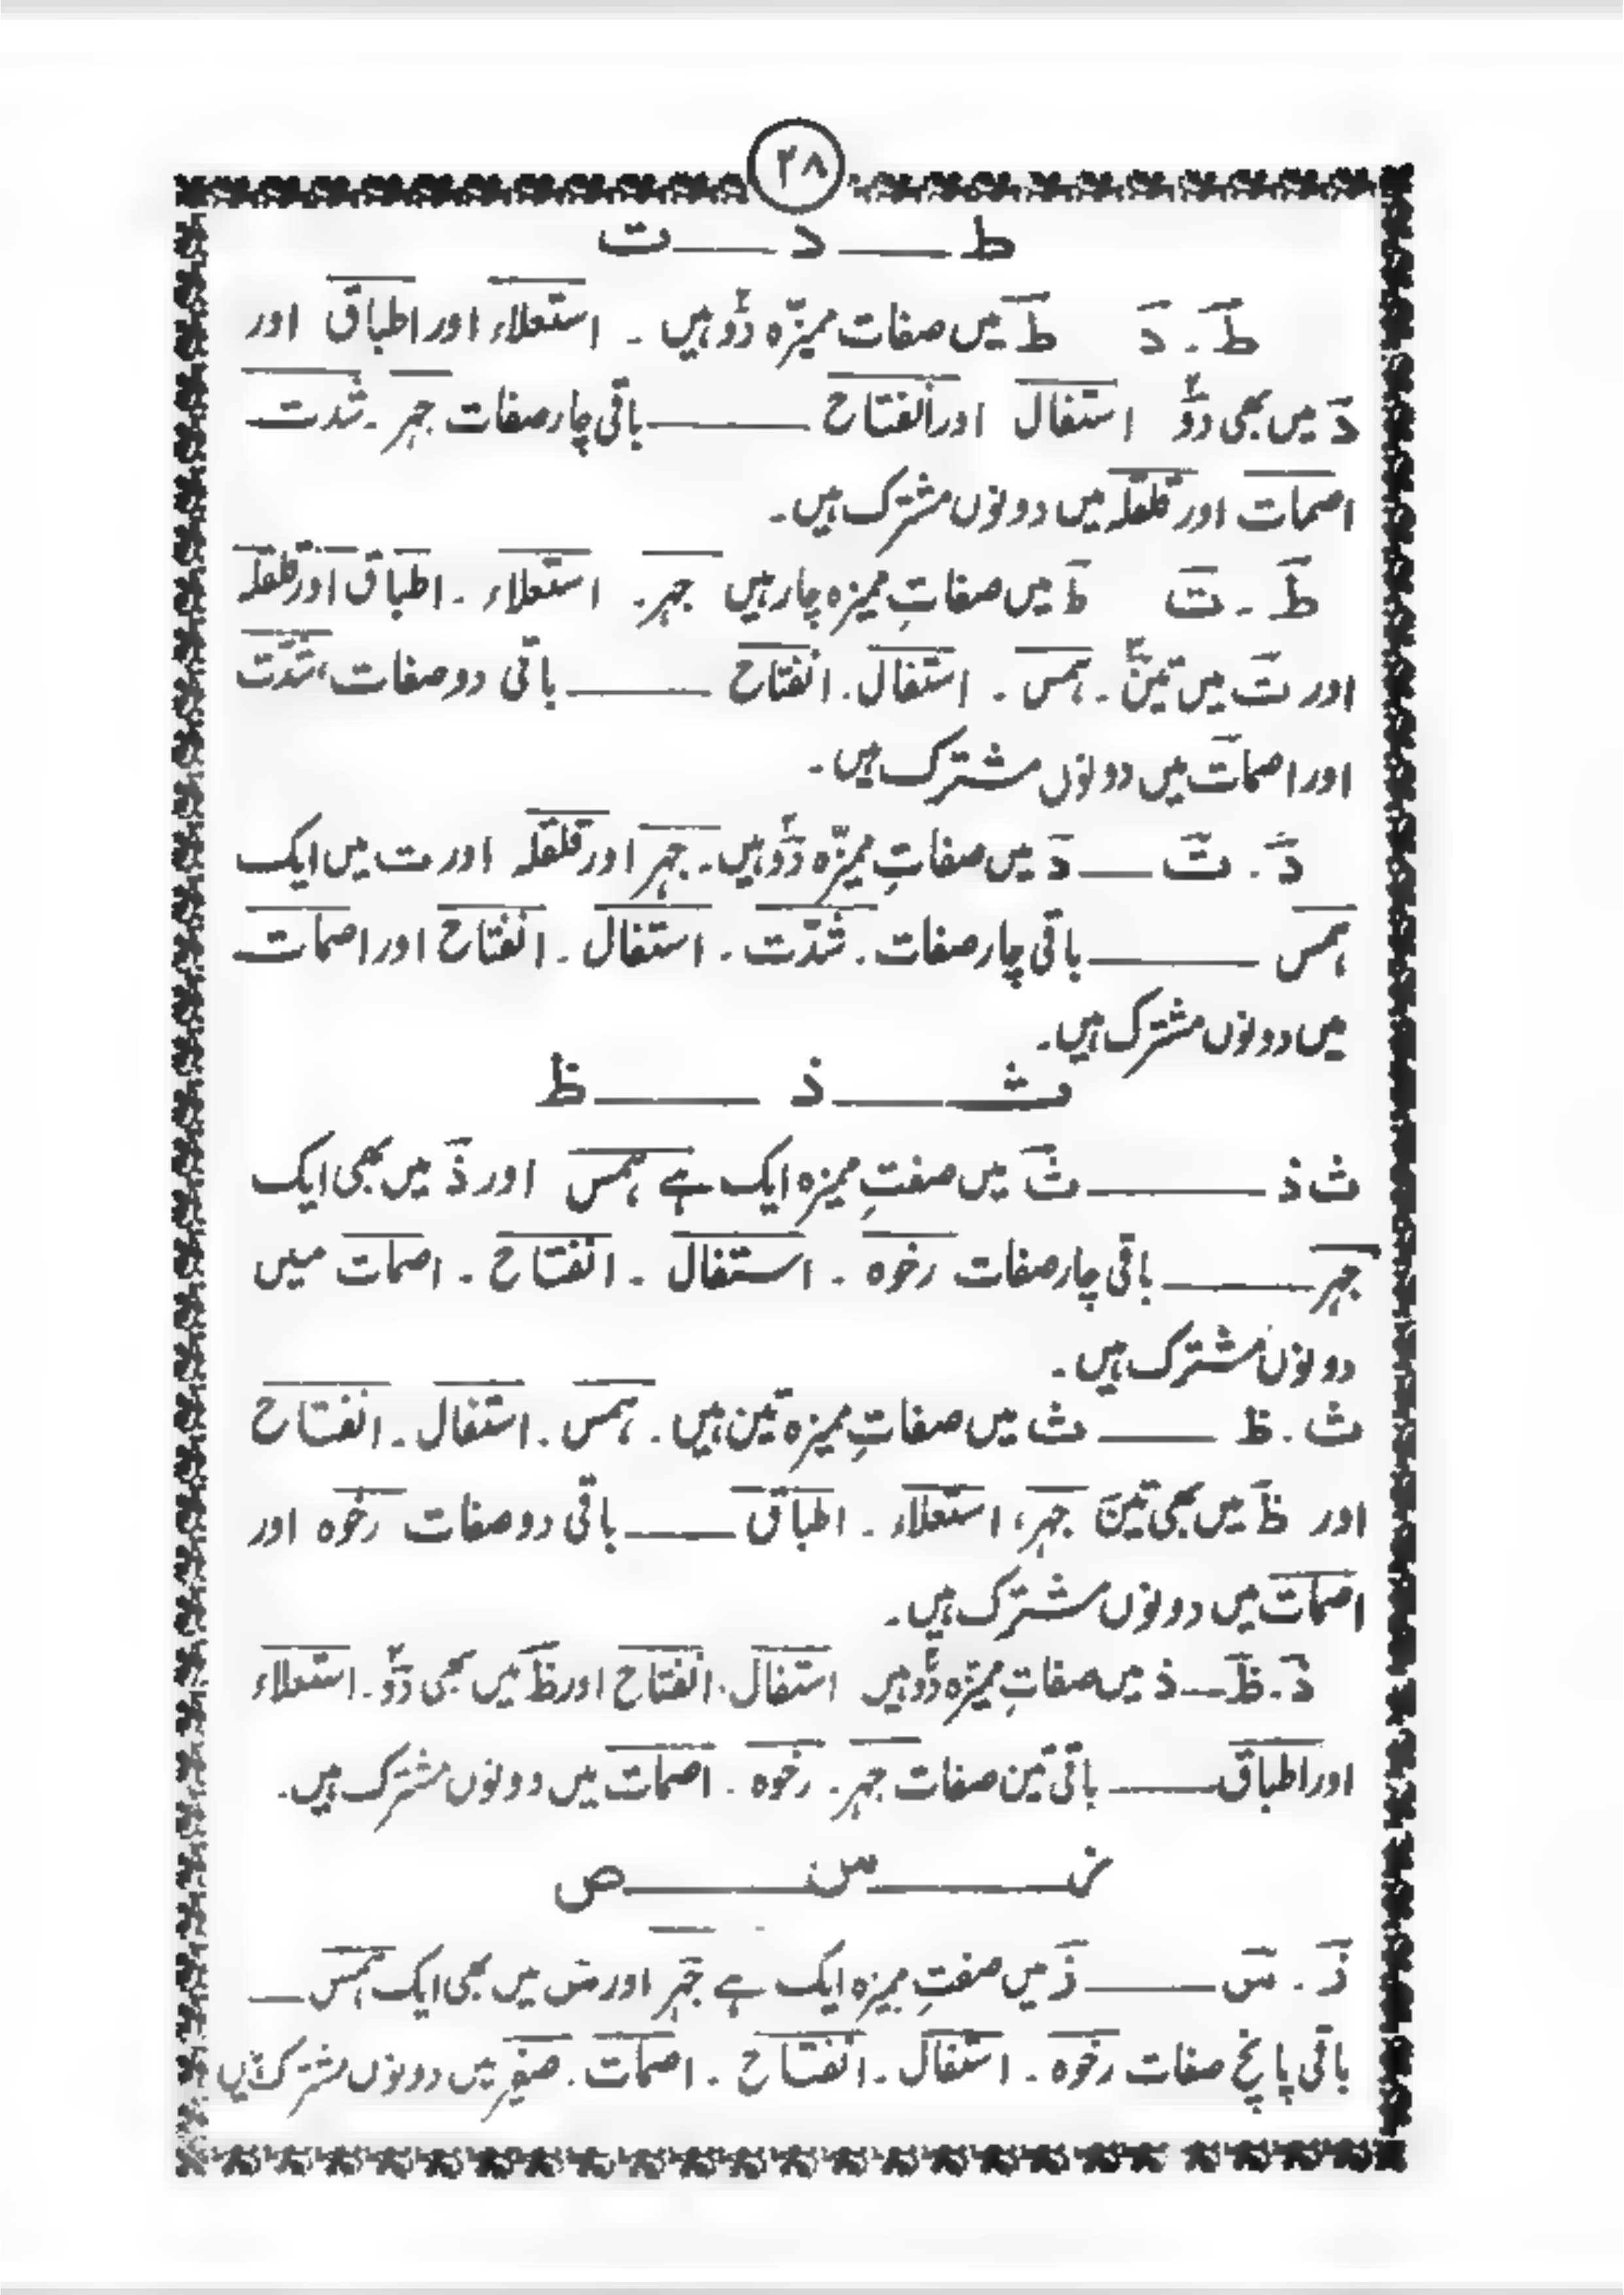 ۲۸
ط ـــــ د ـــــ ت
ط ۔ د ط میں صفات ممیزّہ دو ہیں ۔ استعلاء اور اطباق اور
د میں بھی دو استفال اور انفتاح ـــــ باقی چار صفات جہر ۔ شدت
اصمات اور قلقلہ میں دونوں مشترک ہیں۔
ط ۔ ت ط میں صفاتِ ممیزہ چار ہیں جہر ۔ استعلاء ۔ اطباق اور قلقلہ
اور ت میں تین ۔ ہمس ۔ استفال ۔ انفتاح ـــــ باقی دو صفات، شدّت
اور اصمات میں دونوں مشترک ہیں ۔
د ۔ ت ـــــ د میں صفاتِ ممیزّہ دو ہیں ۔ جہر اور قلقلہ اور ت میں ایک
ہمس ـــــ باقی چار صفات ۔ شدّت ۔ استفال ۔ انفتاح اور اصمات
میں دونوں مشترک ہیں۔
ث ـــــ ذ ـــــ ظ
ث ذ ـــــ ث میں صفتِ ممیزہ ایک ہے ہمس اور ذ میں بھی ایک
جہر ـــــ باقی چار صفات رخوہ ۔ استفال ۔ انفتاح ۔ اصمات میں
دونوں مشترک ہیں ۔
ث ۔ ظ ـــــ ث میں صفاتِ ممیزہ تین ہیں ۔ ہمس ۔ استفال ۔ انفتاح
اور ظ میں بھی تین جہر، استعلاء ۔ اطباق ـــــ باقی دو صفات رخوہ اور
اصمات میں دونوں مشترک ہیں ۔
ذ ۔ ظ ـــــ ذ میں صفاتِ ممیزّہ دو ہیں استفال ۔ انفتاح اور ظ میں بھی دو ۔ استعلاء
اور اطباق ـــــ باقی تین صفات جہر ۔ رخوہ ۔ اصمات میں دونوں مشترک ہیں۔
ز ـــــ س ـــــ ص
ز ۔ س ـــــ ز میں صفتِ ممیزہ ایک ہے جہر اور س میں بھی ایک ہمس ـــــ
باقی پانچ صفات رخوہ ۔ استفال ۔ انفتاح ۔ اصمات ۔ صفیر میں دونوں مشترک ہیں